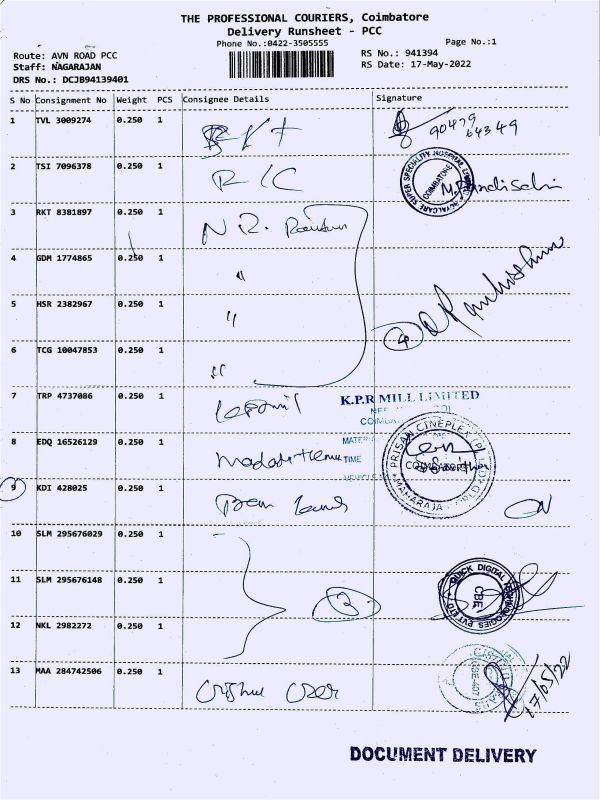 THE PROFESSIONAL COURIERS, Coimbatore
Delivery Runsheet - PCC
Phone No.:0422-3505555
Page No.:1
Route: AVN ROAD PCC
RS No.: 941394
Staff: NAGARAJAN
RS Date: 17-May-2022
DRS No.: DCJB94139401
S No Consignment No Weight PCS Consignee Details Signature
1 TVL 3009274 0.250 1
90479
64349
2 TSI 7096378 0.250 1 R/C
ROYALCARE SUPER SPECIALITY HOSPITAL LIMITED COIMBATORE
3 RKT 8381897 0.250 1 N.R.
4 GDM 1774865 0.250 1 "
5 HSR 2382967 0.250 1 "
4
6 TCG 10047853 0.250 1 "
7 TRP 4737086 0.250 1
K.P.R MILL LIMITED
8 EDQ 16526129 0.250 1
MATERIAL
TIME
VEHICLE
PRISAN CINEPLEX (P) LTD MAHARAJA COIMBATORE
9 KDI 428025 0.250 1
10 SLM 295676029 0.250 1
11 SLM 295676148 0.250 1
3
QUICK DIGITAL TECHNOLOGIES PVT LTD CBE
12 NKL 2982272 0.250 1
13 MAA 284742506 0.250 1
17/05/22
DOCUMENT DELIVERY